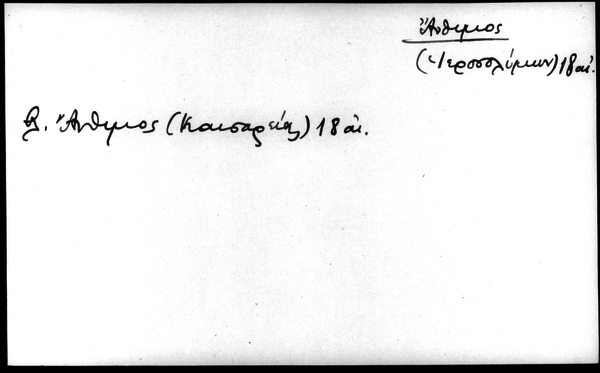 Ἄνθιμος
(Ἱεροσολύμων) 18 αἰ.
β. Ἄνθιμος (Καισαρείας) 18 αἰ.